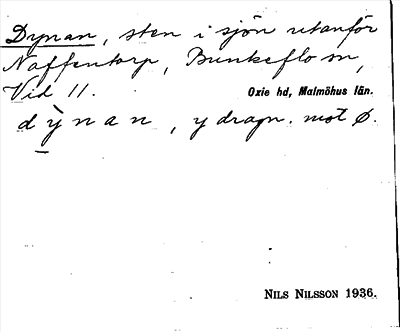 Dynan, sten i sjön utanför
Naffentorp, Bunkeflo sn,
Vid 11. Oxie hd, Malmöhus län.
dỳnan, y dragn. mot ø.
NILS NILSSON 1936.